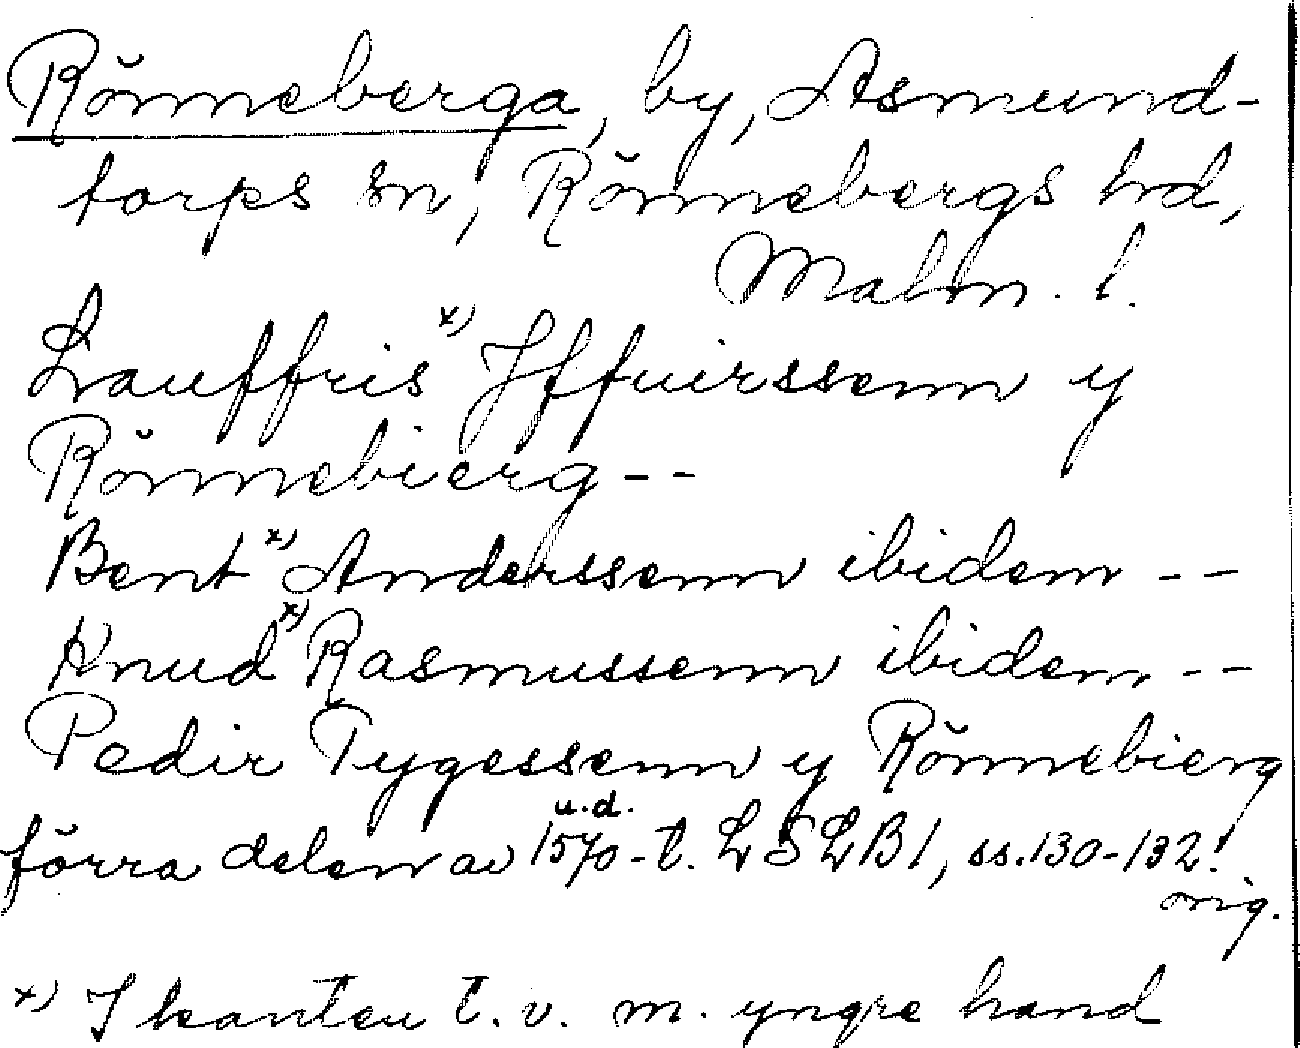 Rönneberga, by, Asmund-
torps sn, Rönnebergs hd,
Malm. l.
Lauffris x) Iffuerssenn y
Rönnebierg --
Bent x) Anderssenn ibidem --
Knud x) Rasmussenn ibidem --
Pedir Tygessenn y Rönnebierg
u.d.
förra delen av 1570-t. LSLB1, ss. 130-132.
orig.
x) I kanten t. v. m. yngre hand